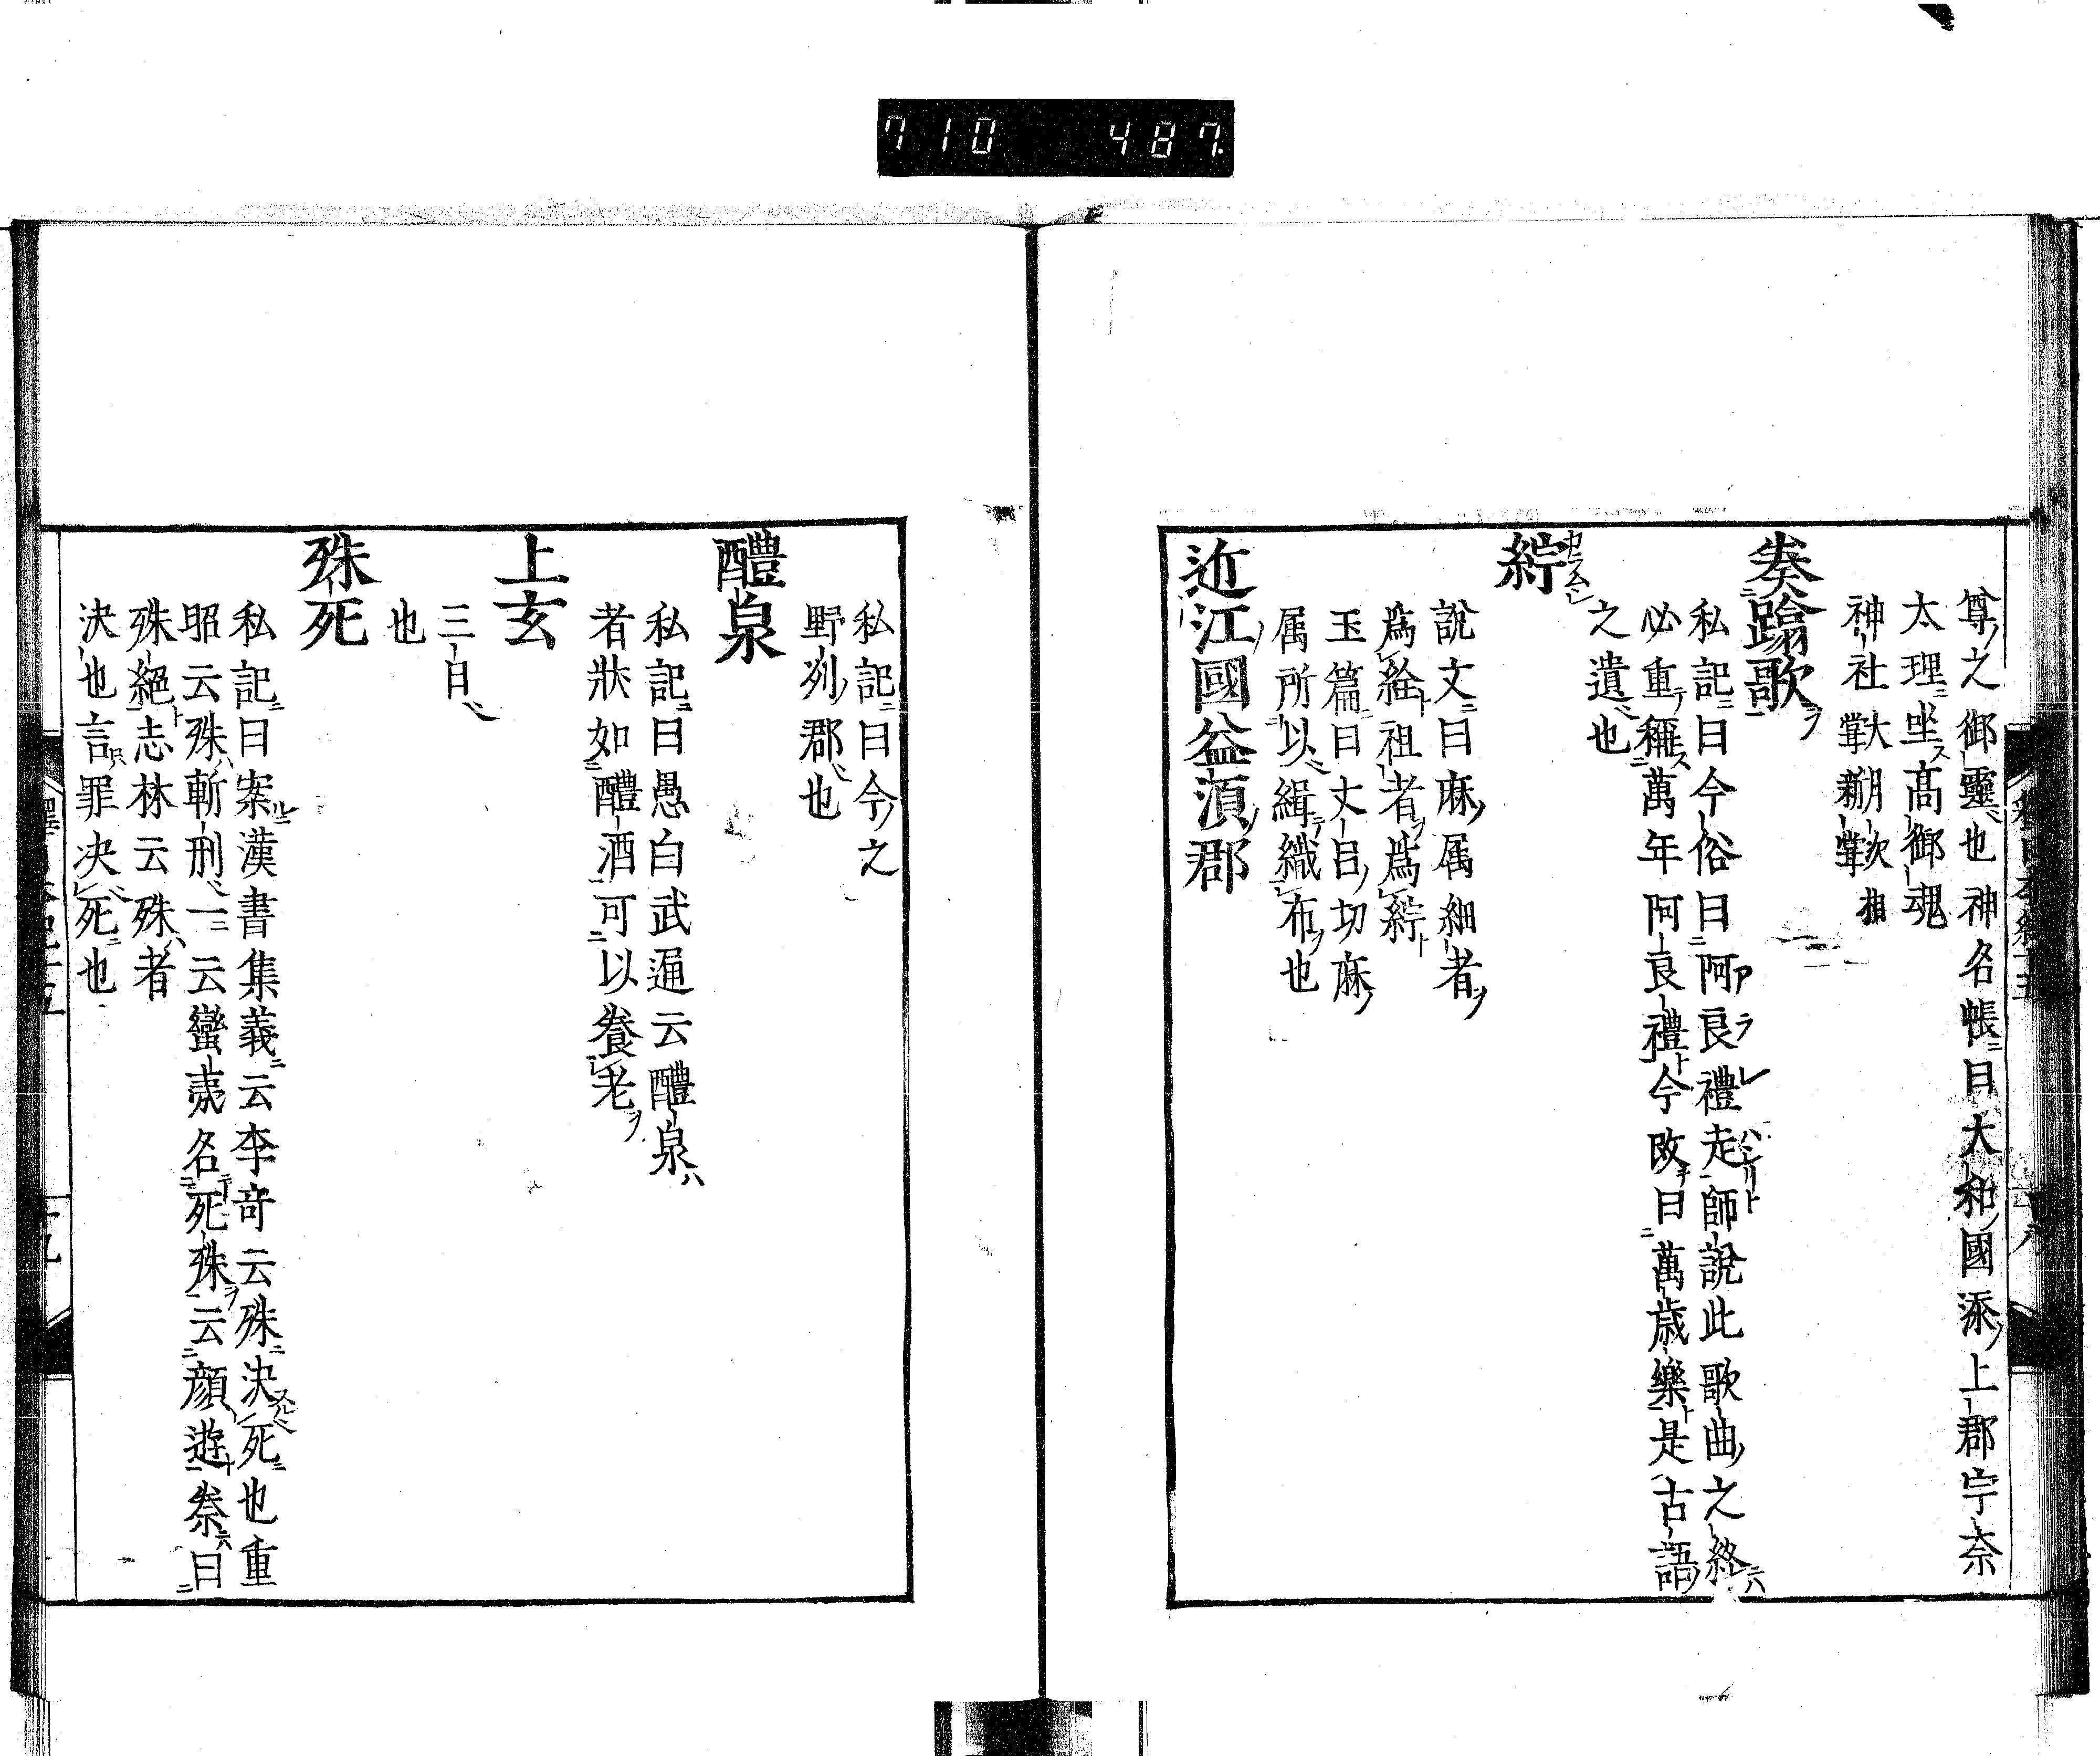 尊之御靈也神名帳曰大和國添上郡宇奈
太理坐髙御魂
神社大月次相嘗新嘗
奏蹹歌
私記曰今俗曰阿良禮走師說此歌曲之終
必重稱萬年阿良禮今改曰萬歳樂是古語
之遺也
紵
說文曰麻属細者
爲絟祖者爲紵
玉篇曰丈呂切麻
属所以緝織布也
近江國益湏郡
私記曰今之
野洲郡也
醴泉
私記曰愚白武通云醴泉
者狀如醴酒可以養老
上玄
三日
也
殊死
私記曰案漢書集義云李竒云殊決死也重
昭云殊斬刑一云蠻夷名死殊云顔遊祭曰
殊絕志林云殊者
決也言罪决死也
710 487.